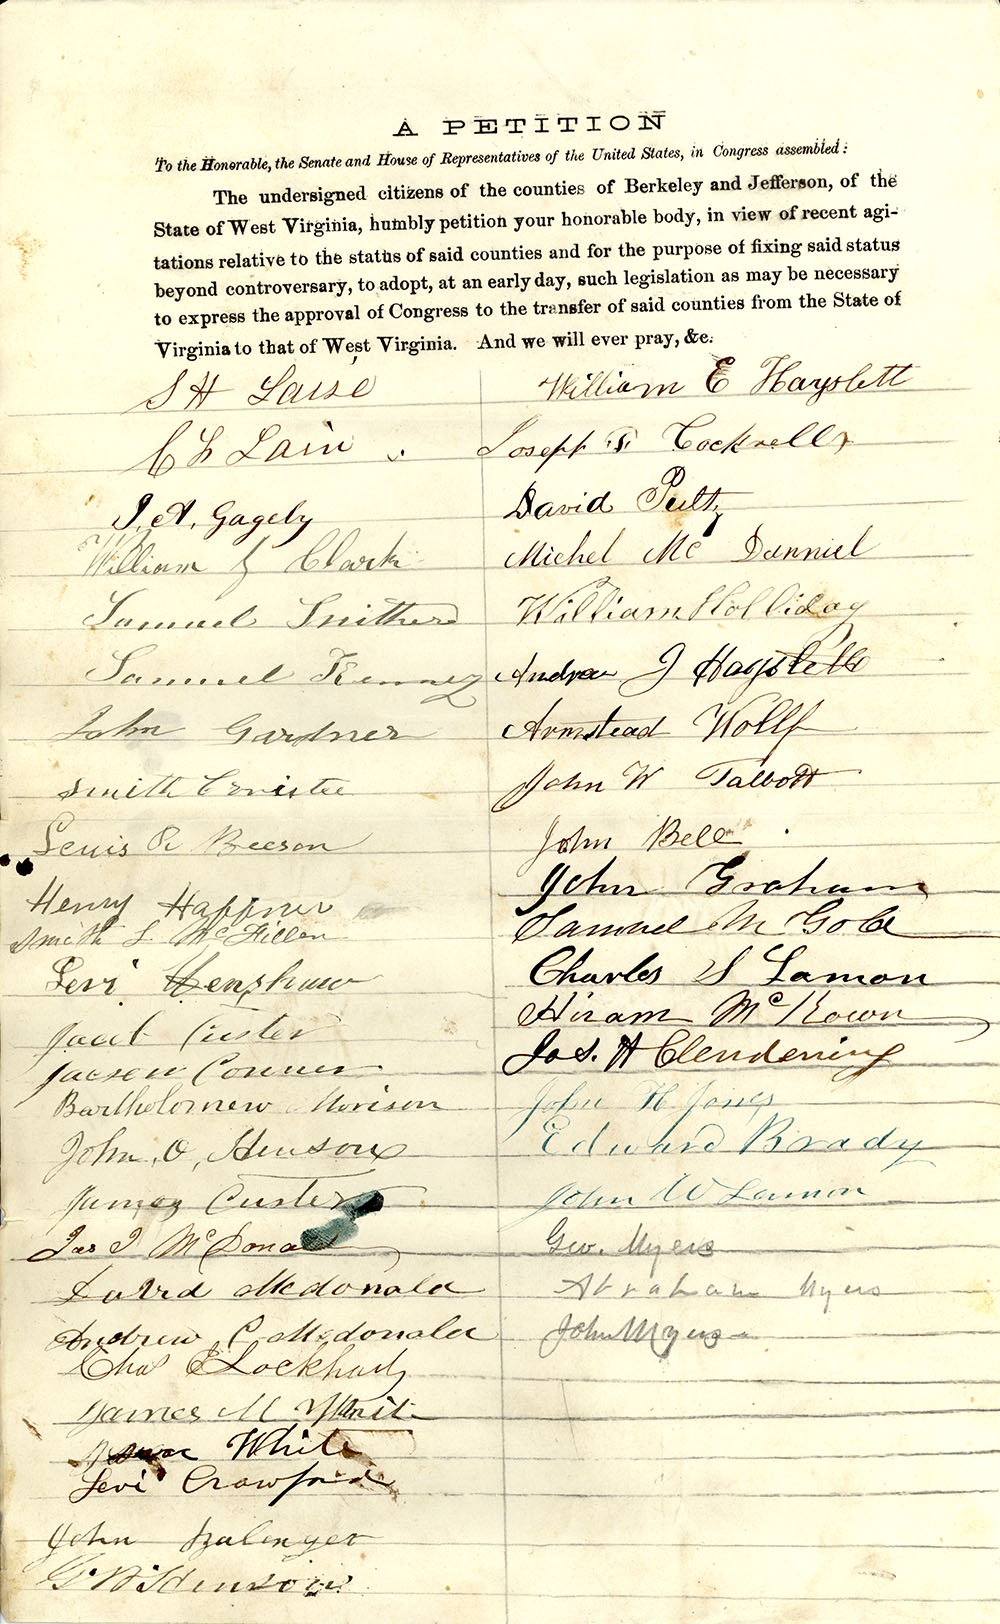 A PETITION
To the Honorable, the Senate and House of Representatives of the United States, in Congress assembled:
The undersigned citizens of the counties of Berkeley and Jefferson, of the
State of West Virginia, humbly petition your honorable body, in view of recent agi-
tations relative to the status of said counties and for the purpose of fixing said status
beyond controversary, to adopt, at an early day, such legislation as may be necessary
to express the approval of Congress to the transfer of said counties from the State of
Virginia to that of West Virginia. And we will ever pray, &c.
S H Laise
C L Lain
J. A. Gageby
William J Clark
Samuel Smithers
Samuel Kenney
John Gardner
Smith
Lewis R Beeson
Henry Haffner
Smith L McFillen
Levi Henshaw
Jacob Custer
Conner
Bartholomew Morison
John, O, Henson
James Custer
Jas J McDonald
David Mcdonald
Andrew C Mcdonald
Chas E Lockhart
James M White
White
Levi Crawford
John Balenger
G W Henson
William E Hayslett
Joseph T Cockrell
David Pultz
Michel Mc Danniel
William Holliday
Andrew J Hayslett
Armstead Wollf
John W Talbott
John Bell
John Graham
Samuel M Gold
Charles S Lamon
Hiram McKown
Jos. H Clendening
John H Jones
Edward Brady
John W Lamon
Geo. Myers
Abraham Myers
John Myers